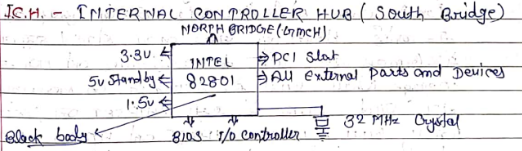 I.C.H. - INTERNAL CONTROLLER HUB ( South Bridge)
NORTH BRIDGE (GMCH)
3.3v
INTEL
PCI Slot
5v Standby
82801
All External Parts and Devices
1.5v
Black body
BIOS I/O Controller
32 MHz Crystal